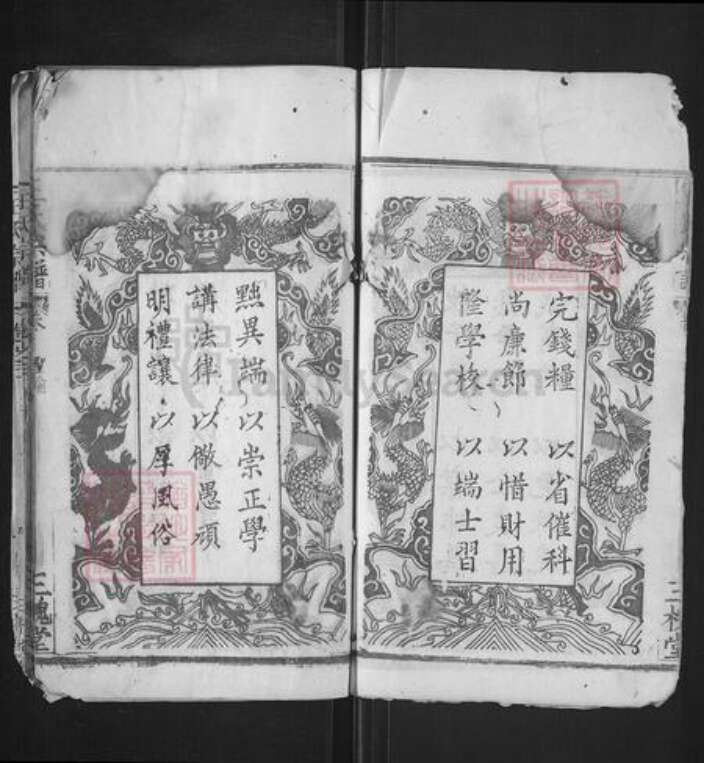 完錢糧 以省催科
尚廉節 以惜財用
隆學校 以端士習
三槐堂
黜異端 以崇正學
講法律 以儆愚頑
明禮讓 以厚風俗
譜
三槐堂
FamilySearch